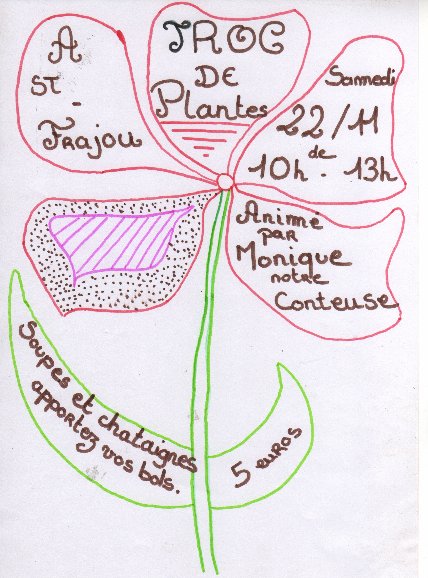 A
ST -
Frajou
TROC
DE
Plantes
Samedi
22/11
de
10h - 13h
Animé
par
Monique
notre
Conteuse
Soupes et chataignes
apportez vos bols.
5 euros